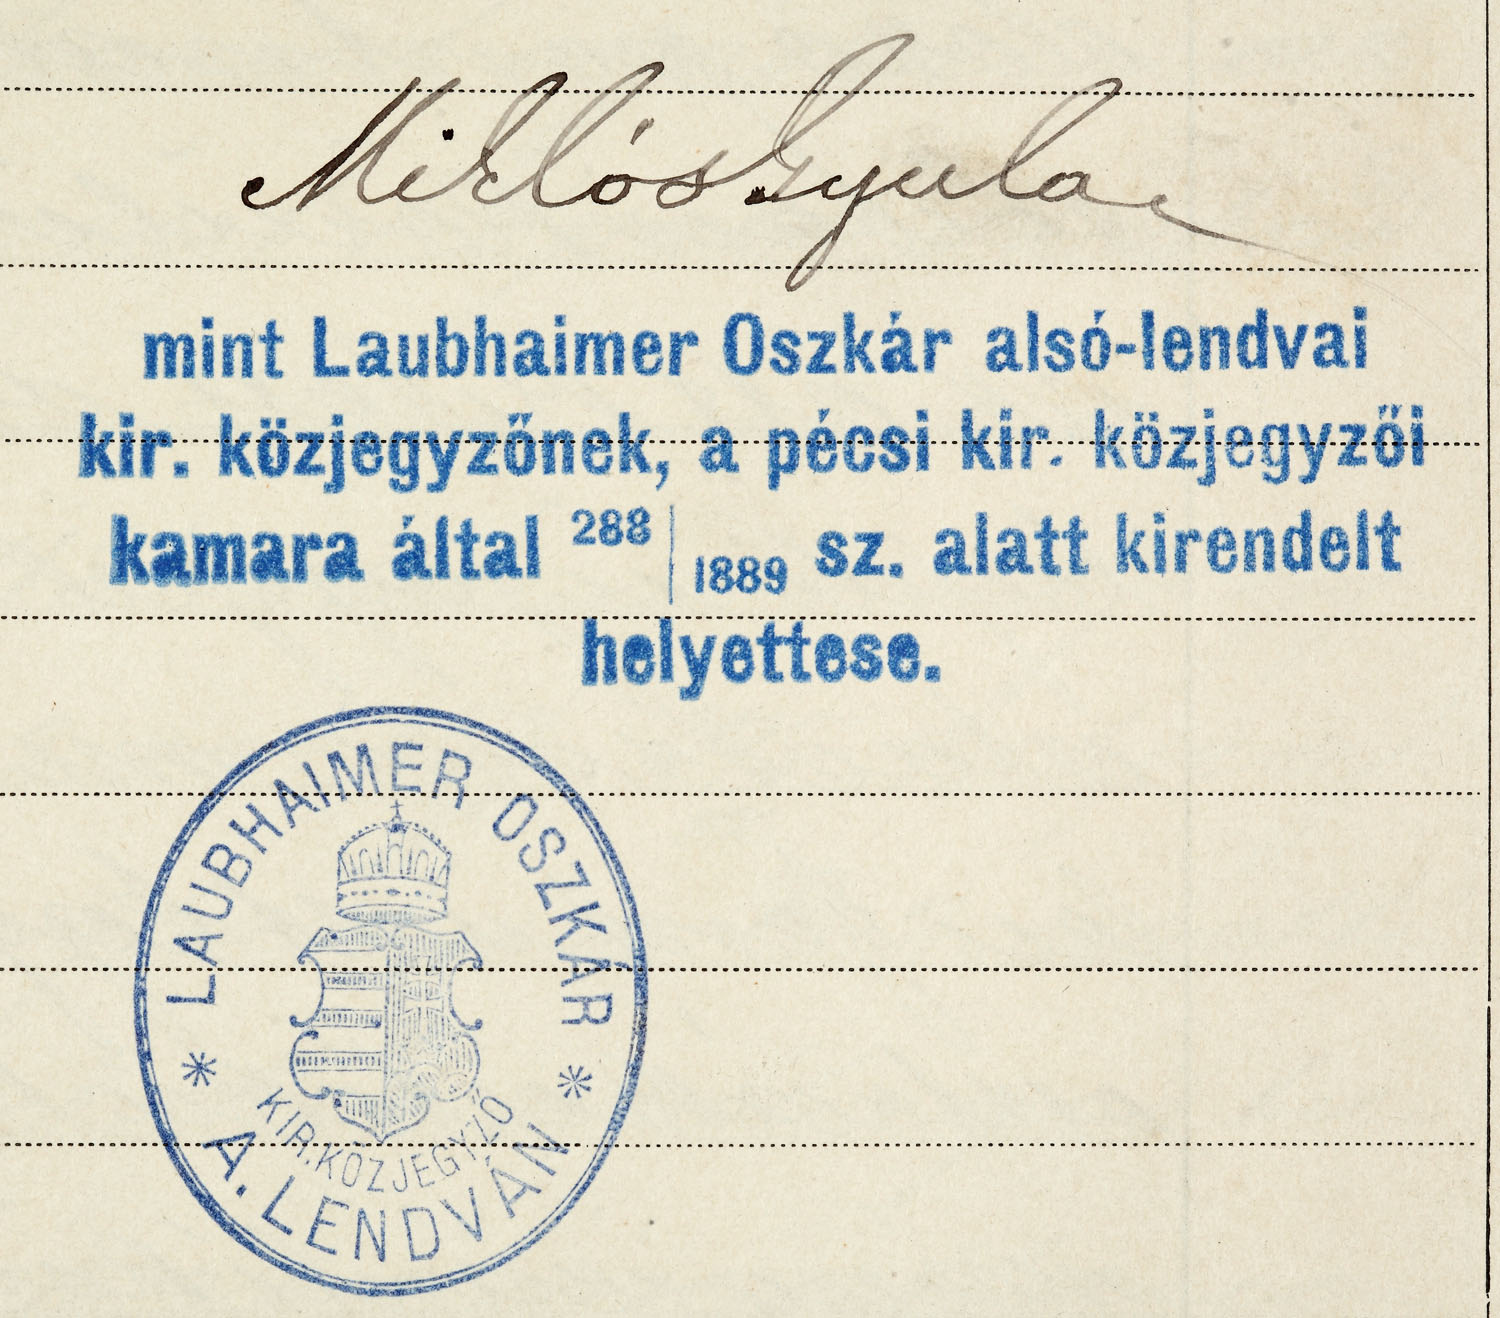 Miklós Gyula
mint Laubhaimer Oszkár alsó-lendvai
kir. közjegyzőnek, a pécsi kir. közjegyzői
kamara által 288|1889 sz. alatt kirendelt
helyettese.
LAUBHAIMER OSZKÁR
KIR. KÖZJEGYZŐ
* A. LENDVÁN *